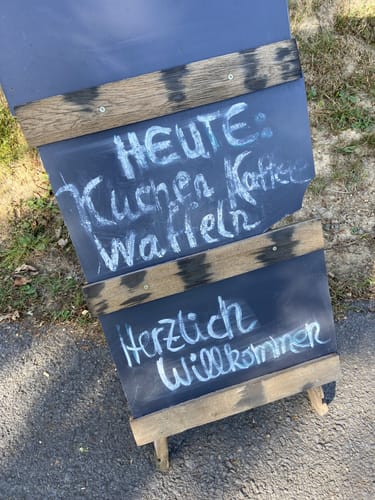 HEUTE:
Kuchen Kaffee
Waffeln
Herzlich
Willkommen